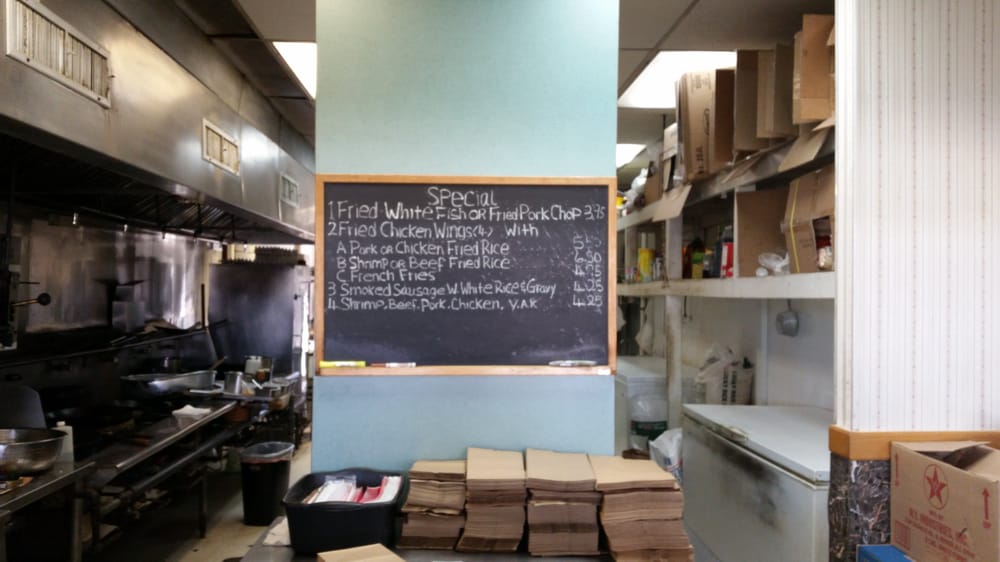 Special
1 Fried White Fish or Fried Pork Chop 3.75
2 Fried Chicken Wings(4) With
A Pork or Chicken Fried Rice
B Shrimp or Beef Fried Rice 6.50
C French Fries 4.25
3 Smoked Sausage W. White Rice & Gravy 4.25
4 Shrimp, Beef, Pork, Chicken, YAK 4.25